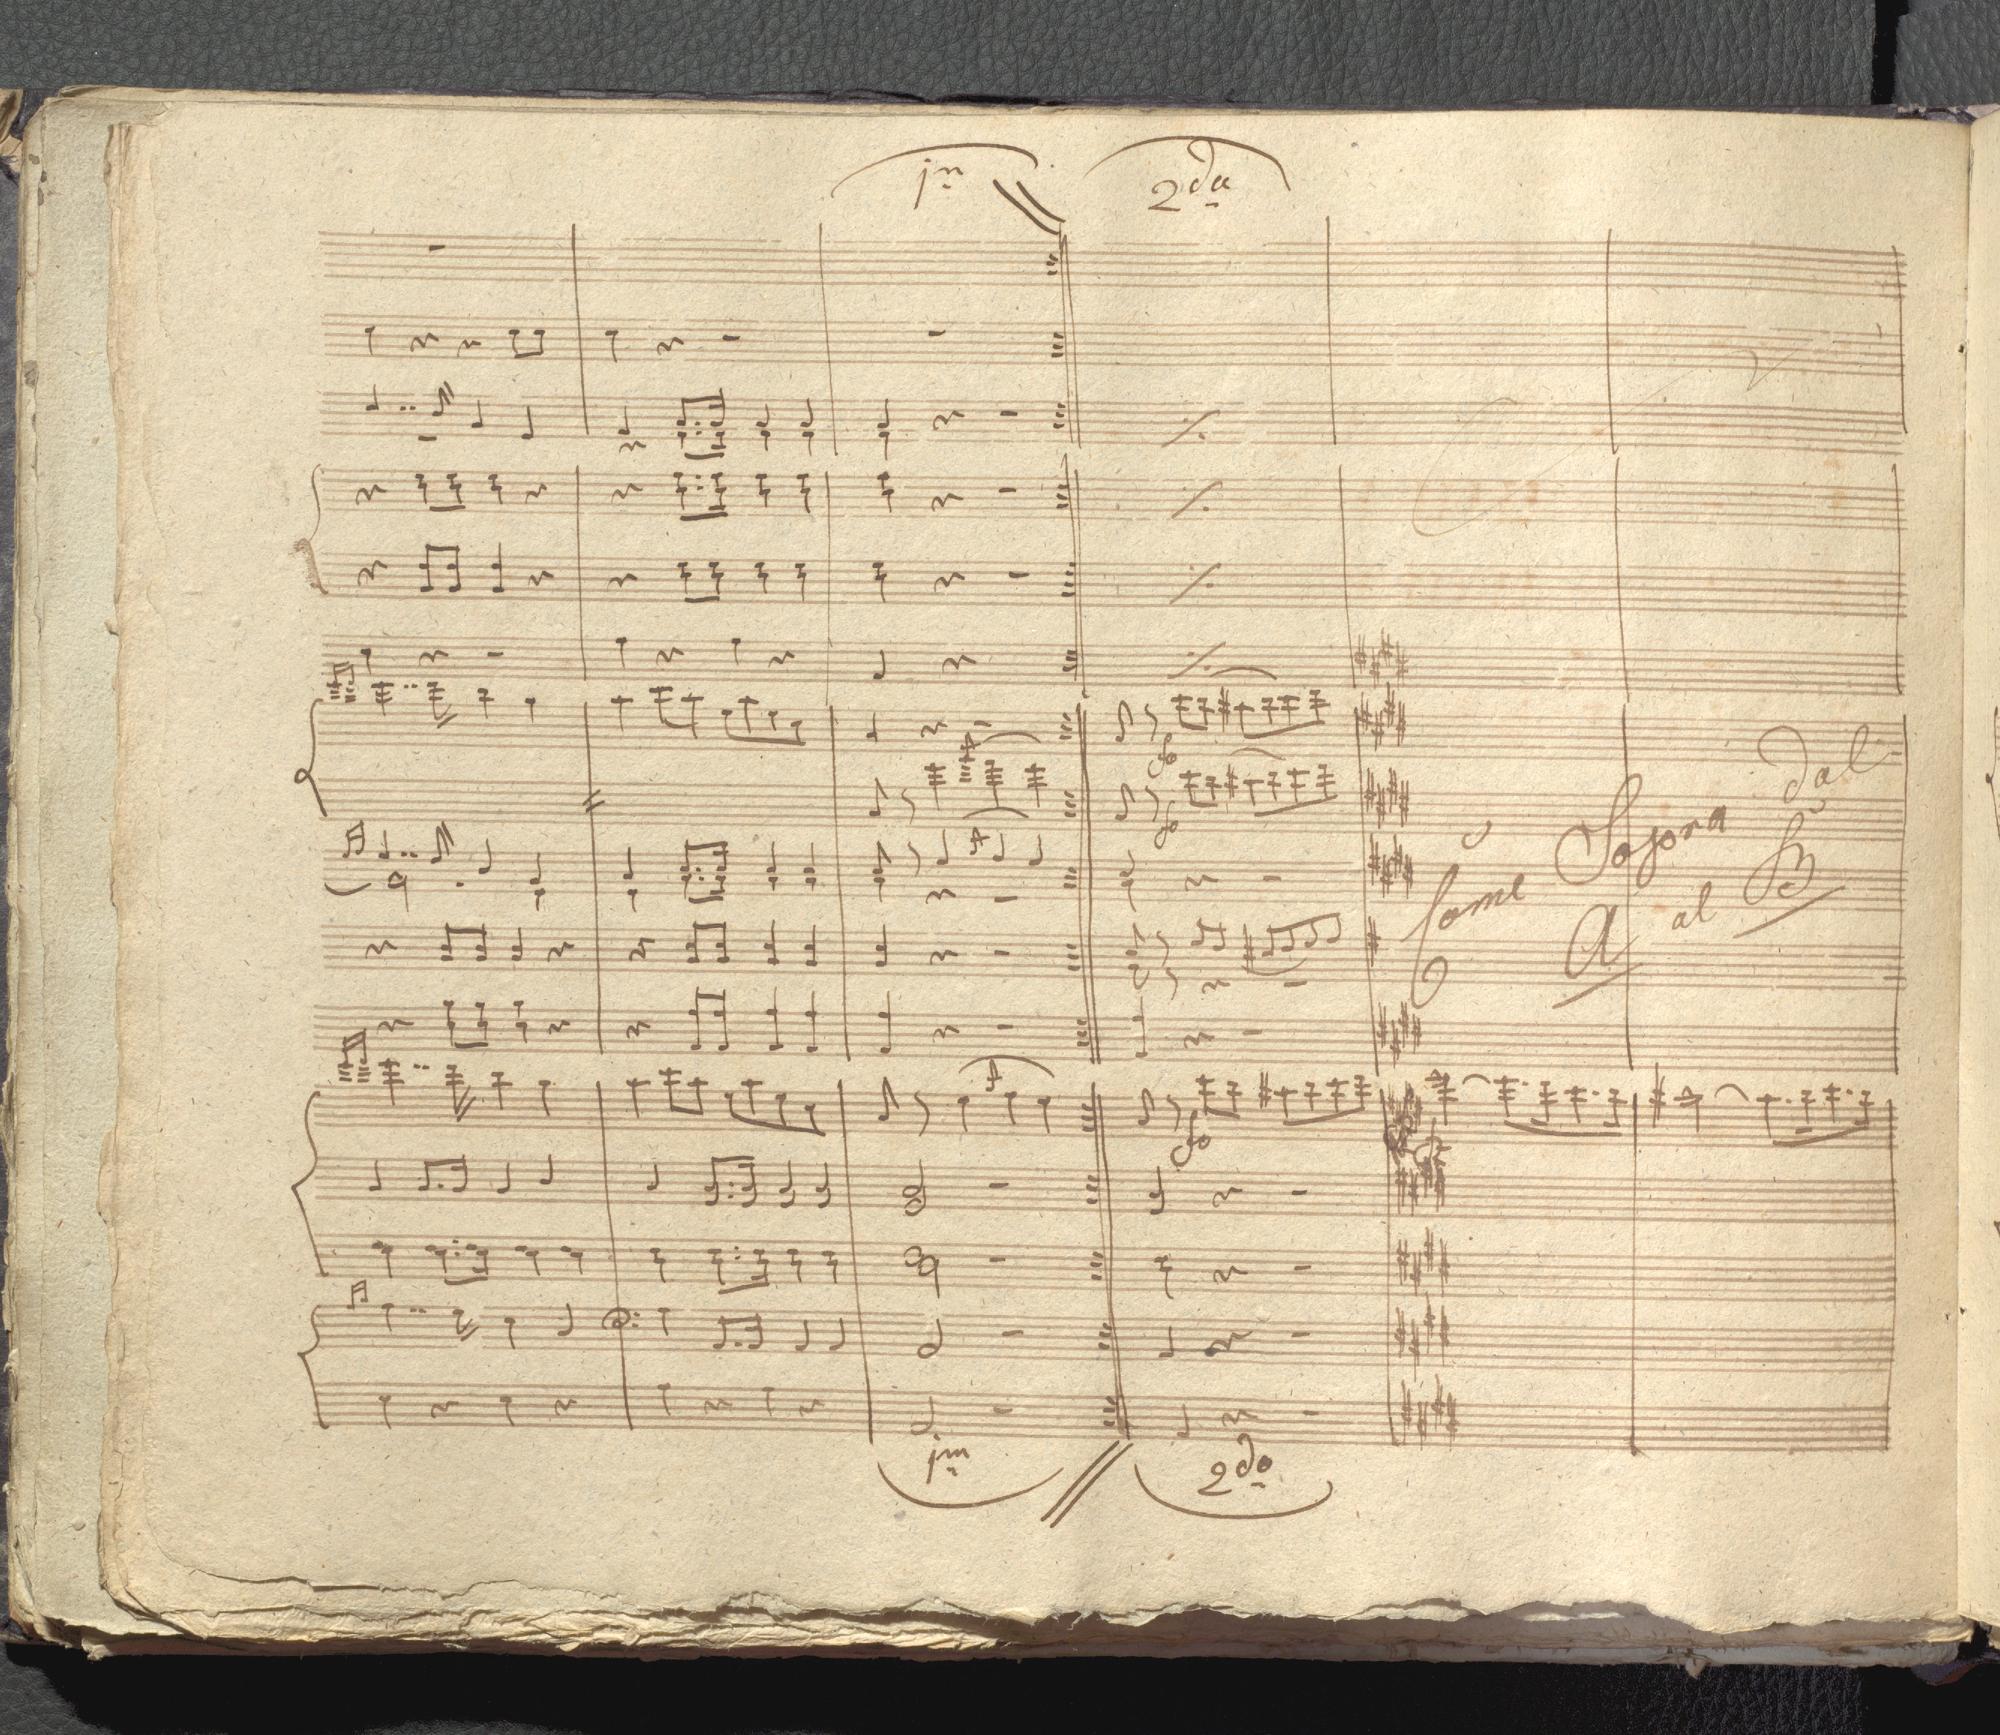 1ma 2da
fo
fo
Come Sopra dal
A al B
fo
1mo 2do